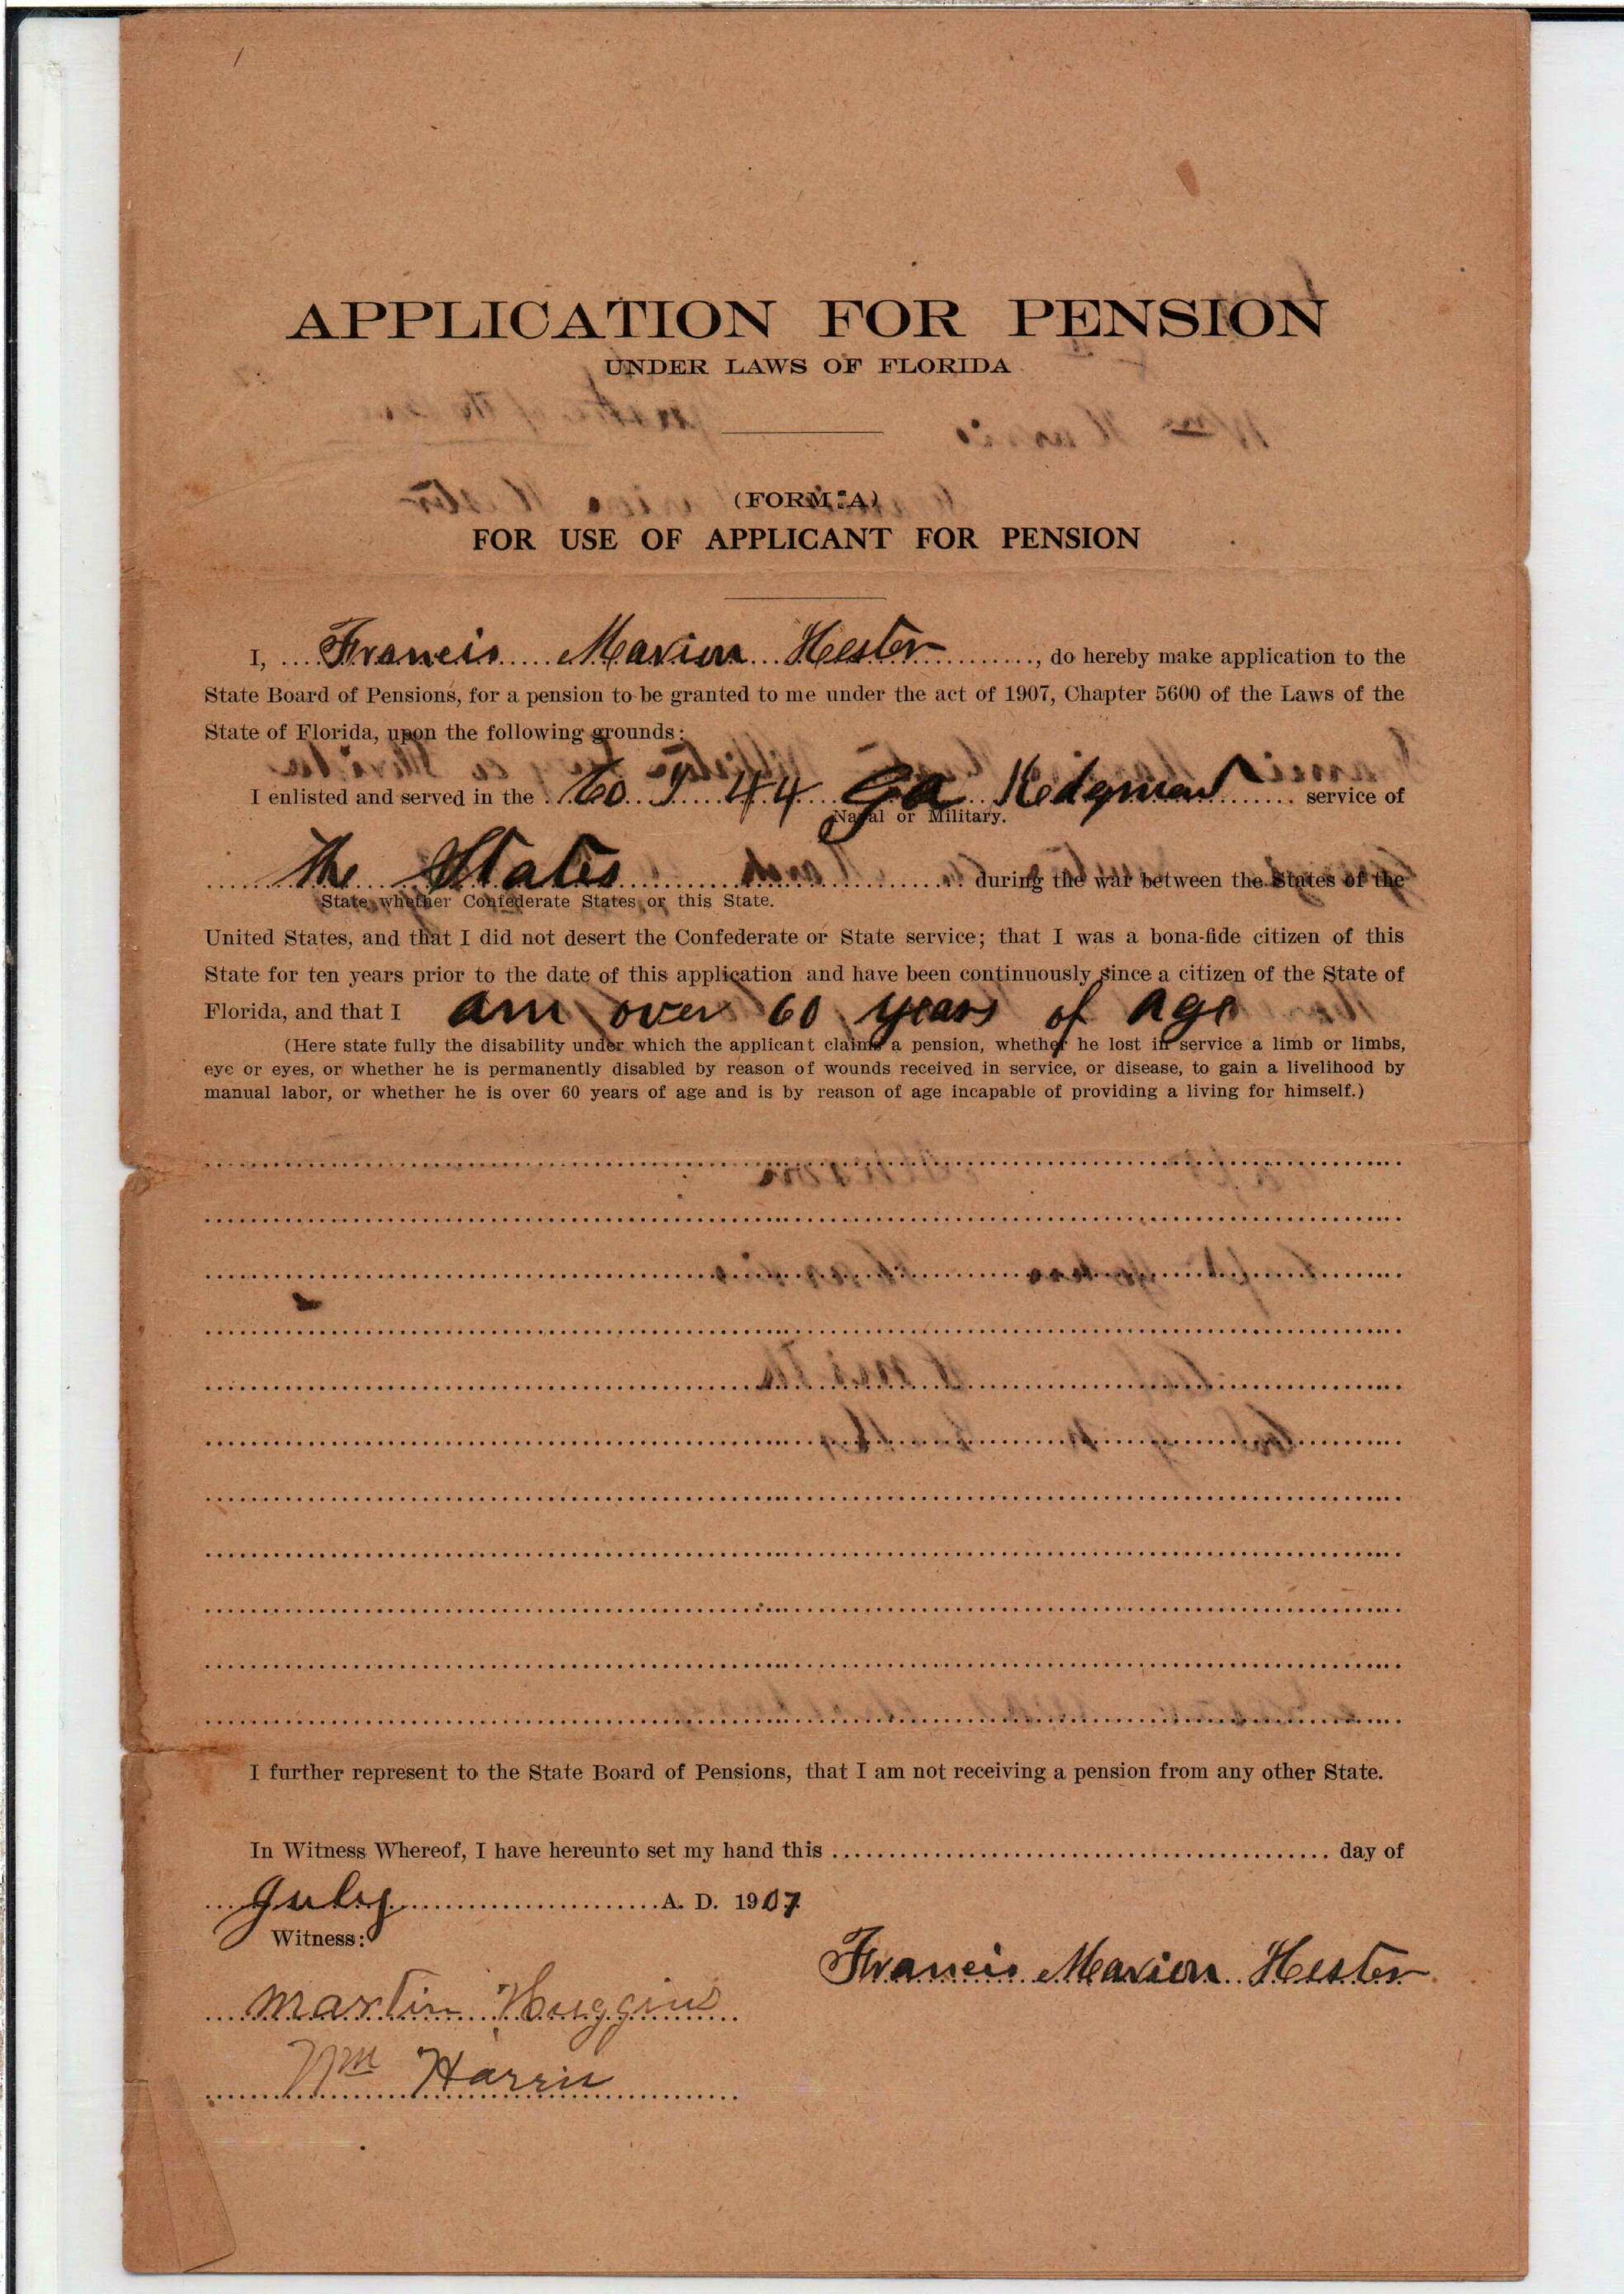 APPLICATION FOR PENSION
UNDER LAWS OF FLORIDA
(FORM A)
FOR USE OF APPLICANT FOR PENSION
I, Francis Marion Hester, do hereby make application to the
State Board of Pensions, for a pension to be granted to me under the act of 1907, Chapter 5600 of the Laws of the
State of Florida, upon the following grounds:
I enlisted and served in the Co. 44 Ga service of
Naval or Military.
The States during the war between the States of the
State whether Confederate States or this State.
United States, and that I did not desert the Confederate or State service; that I was a bona-fide citizen of this
State for ten years prior to the date of this application and have been continuously since a citizen of the State of
Florida, and that I am over 60 years of age
(Here state fully the disability under which the applicant claims a pension, whether he lost in service a limb or limbs,
eye or eyes, or whether he is permanently disabled by reason of wounds received in service, or disease, to gain a livelihood by
manual labor, or whether he is over 60 years of age and is by reason of age incapable of providing a living for himself.)
I further represent to the State Board of Pensions, that I am not receiving a pension from any other State.
In Witness Whereof, I have hereunto set my hand this day of
July A. D. 1907
Witness:
Francis Marion Hester
Martin Huggins
Wm Harris